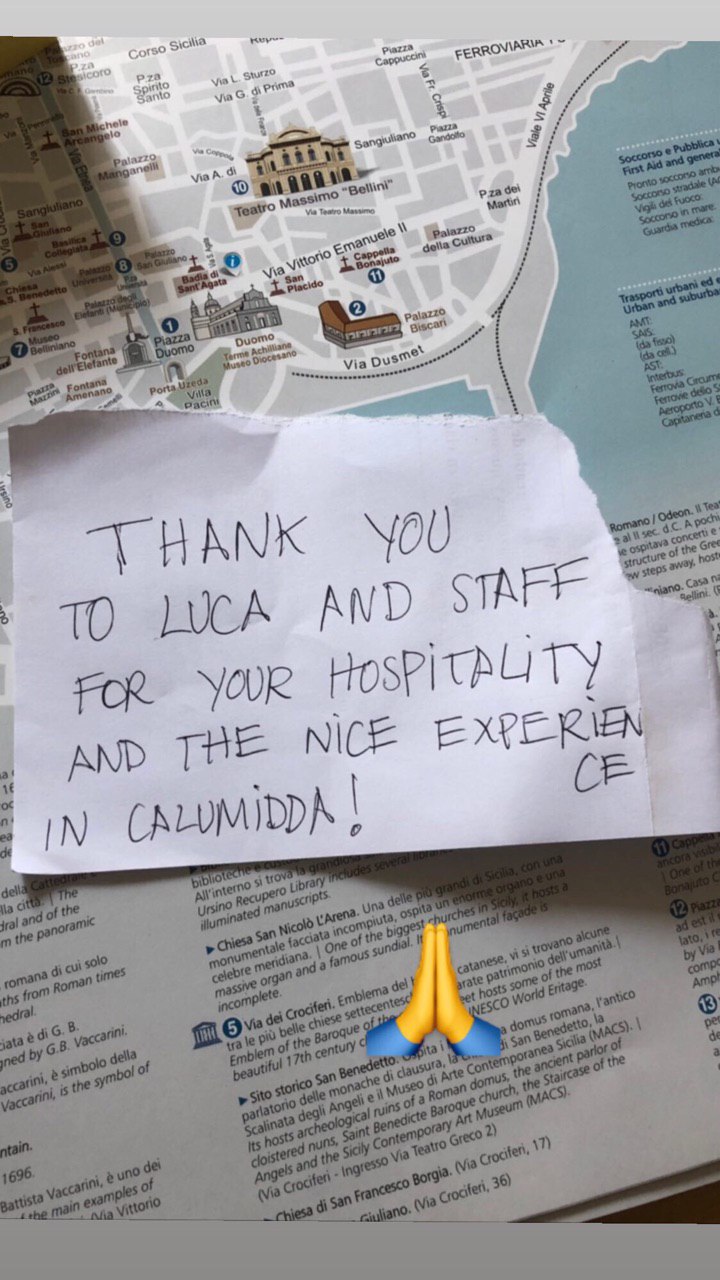 Corso Sicilia
Piazza
Cappuccini
FERROVIARIA
P.za
Stesicoro
12
P.za
Spirito
Santo
Via L. Sturzo
Via G. di Prima
Via Fr. Crispi
Viale VI Aprile
San Michele
Arcangelo
Palazzo
Manganelli
Via Coppola
Via A. di
Sangiuliano
Piazza
Gandolfo
10
Teatro Massimo "Bellini"
Via Teatro Massimo
P.za dei
Martiri
Via Etnea
Sangiuliano
San
Giuliano
Basilica
Collegiata
9
5
Via Alessi
8
Palazzo
San Giuliano
Palazzo
Università
P.za
Università
Badia di
Sant'Agata
i
Via Vittorio Emanuele II
Palazzo
della Cultura
San
Placido
Cappella
Bonajuto
11
Chiesa
S. Benedetto
S. Francesco
Palazzo degli
Elefanti (Municipio)
7
Museo
Belliniano
1
Piazza
Duomo
Duomo
2
Palazzo
Biscari
Fontana
dell'Elefante
Terme Achilliane
Museo Diocesano
Via Dusmet
Piazza
Mazzini
Fontana
Amenano
Porta Uzeda
Villa
Pacini
Soccorso e Pubblica
First Aid and general
Pronto soccorso
Soccorso stradale
Vigili del Fuoco:
Soccorso in mare:
Guardia medica:
Trasporti urbani ed
Urban and suburban
AMT:
SAIS:
(da fisso)
(da cell.)
AST:
Interbus:
Ferrovia Circum
Ferrovie dello
Aeroporto V.
Capitaneria
THANK YOU
TO LUCA AND STAFF
FOR YOUR HOSPITALITY
AND THE NICE EXPERIEN
CE
IN CALUMIDDA!
Romano / Odeon. Il
al II sec. d.C. A
ospitava concerti e
structure of the
steps away,
Casa
Bellini.
della Cattedrale
città. | The
and of the
the panoramic
romana di cui solo
from Roman times
è di G. B.
by G.B. Vaccarini.
è simbolo della
Vaccarini, is the symbol of
1696.
Battista Vaccarini, è uno dei
the main examples of
Via Vittorio
biblioteche e
All'interno si trova la
Ursino Recupero Library includes several
illuminated manuscripts.
▶ Chiesa San Nicolò L'Arena. Una delle più grandi di Sicilia, con una
monumentale facciata incompiuta, ospita un enorme organo e una
celebre meridiana. | One of the biggest churches in Sicily, it hosts a
massive organ and a famous sundial. monumental façade is
incomplete.
5 Via dei Crociferi. Emblema del catanese, vi si trovano alcune
tra le più belle chiese patrimonio dell'umanità. |
Emblem of the Baroque of hosts some of the most
beautiful 17th century UNESCO World Eritage.
▶ Sito storico San Benedetto. Ospita domus romana, l'antico
parlatorio delle monache di clausura, la di San Benedetto, la
Scalinata degli Angeli e il Museo di Arte Contemporanea Sicilia (MACS). |
Its hosts archeological ruins of a Roman domus, the ancient parlor of
cloistered nuns, Saint Benedicte Baroque church, the Staircase of the
Angels and the Sicily Contemporary Art Museum (MACS).
(Via Crociferi - Ingresso Via Teatro Greco 2)
Chiesa di San Francesco Borgia. (Via Crociferi, 17)
Giuliano. (Via Crociferi, 36)
11
ancora
| One of
Bonajuto
12 Piazza
ad est il
lato, i
by Via
13